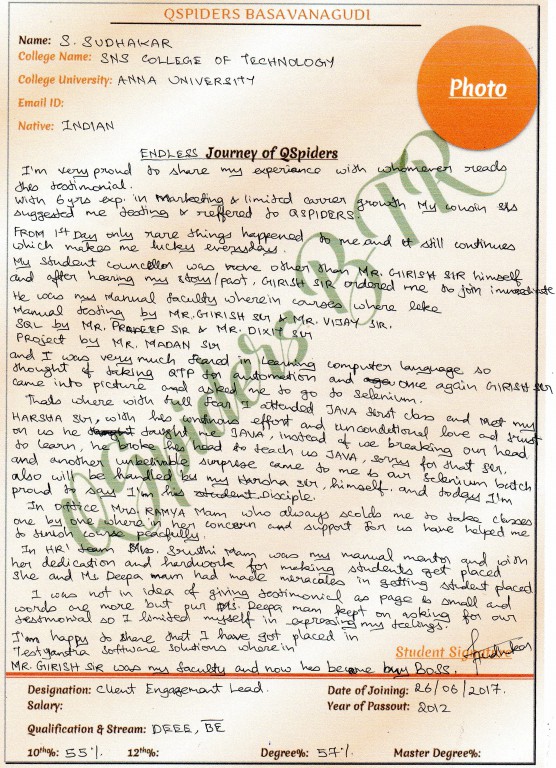 QSPIDERS BASAVANAGUDI
Name: S. SUDHAKAR
College Name: SNS COLLEGE OF TECHNOLOGY
College University: ANNA UNIVERSITY
Email ID:
Native: INDIAN
Photo
ENDLESS Journey of QSpiders
I'm very proud to share my experience with whomever reads
this testimonial.
With 6 yrs exp. in Marketing & limited carrer growth My cousin sis
suggested me testing & reffered to QSPIDERS.
FROM 1st Day only rare things happened to me and it still continues
which makes me luckey everyday.
My student councellor was none other than MR. GIRISH SIR himself
and after hearing my story/past, GIRISH SIR ordered me to join immediate
He was my Manual faculty wherein courses where like
Manual testing by MR. GIRISH SIR & MR. VIJAY SIR.
SQL by MR. PRADEEP SIR & MR. DIXIT SIR
PROJECT by MR. MADAN SIR
and I was very much feared in learning computer language so
thought of taking QTP for automation and once again GIRISH SIR
came into picture and asked me to go to Selenium.
Thats where with full fear I attended JAVA first class and Met my
HARSHA SIR, with his effort and unconditional love and trust
on us he taught me JAVA, instead of we breaking our head
to learn, he broke his head to teach us JAVA, sorry for that SIR,
and another unbelivable surprise came to me is our Selenium batch
also will be handled by my Harsha SIR, himself. and today I'm
proud to say I'm his Disciple.
In OFFICE, Mrs. RAMYA Mam who always scolds me to take classes
one by one wherein her concern and support for us have helped me
to finish course peacfully.
In HR team Mrs. Sruthi Mam was my manual mentor and with
her dedication and hardwork for making students get placed
She and Ms. Deepa mam had made meracales in getting student placed
I was not in idea of giving testimonial as page is small and
words are more but our Ms. Deepa mam kept on asking for our
testimonial so I limited myself in expressing my feelings.
I'm happy to share that I have got placed in
Testyantra software solutions wherein
Student Signature
MR. GIRISH SIR was my faculty and now has become my BOSS.
Designation: Client Engagement Lead.
Date of Joining: 26/06/2017.
Salary:
Year of Passout: 2012
Qualification & Stream: DEEE, BE
10th%: 55%
12th%:
Degree%: 57%
Master Degree%:
QSpiders BTR